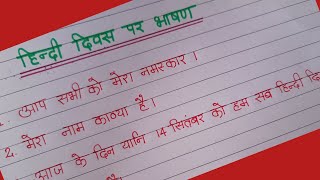 हिन्दी दिवस पर भाषण
1. आप सभी को मेरा नमस्कार ।
2. मेरा नाम काव्या है ।
आज के दिन यानि 14 सितंबर को हम सब हिन्दी
है ।